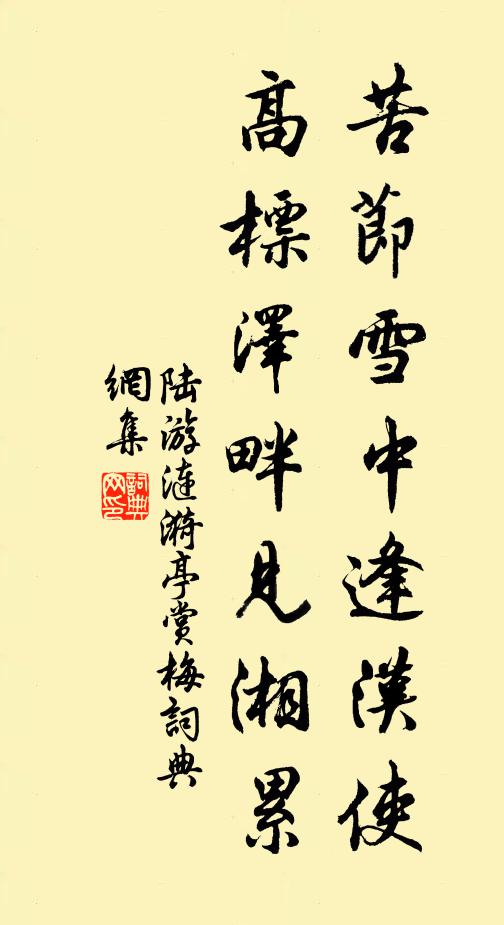 苦節雪中逢漢使
高標澤畔見湘累
陆游涟漪亭赏梅詞典
網集
詞典
网印